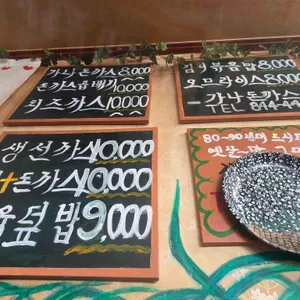 가낙돈까스 8,000
돈까스뚝배기 10,000
치즈까스 10,000
김치볶음밥 8,000
오므라이스 8,000
가낙돈까스
TEL 844-4
생선까스 10,000
+돈까스 10,000
덮밥 9,000
80~90년대
옛날 맛